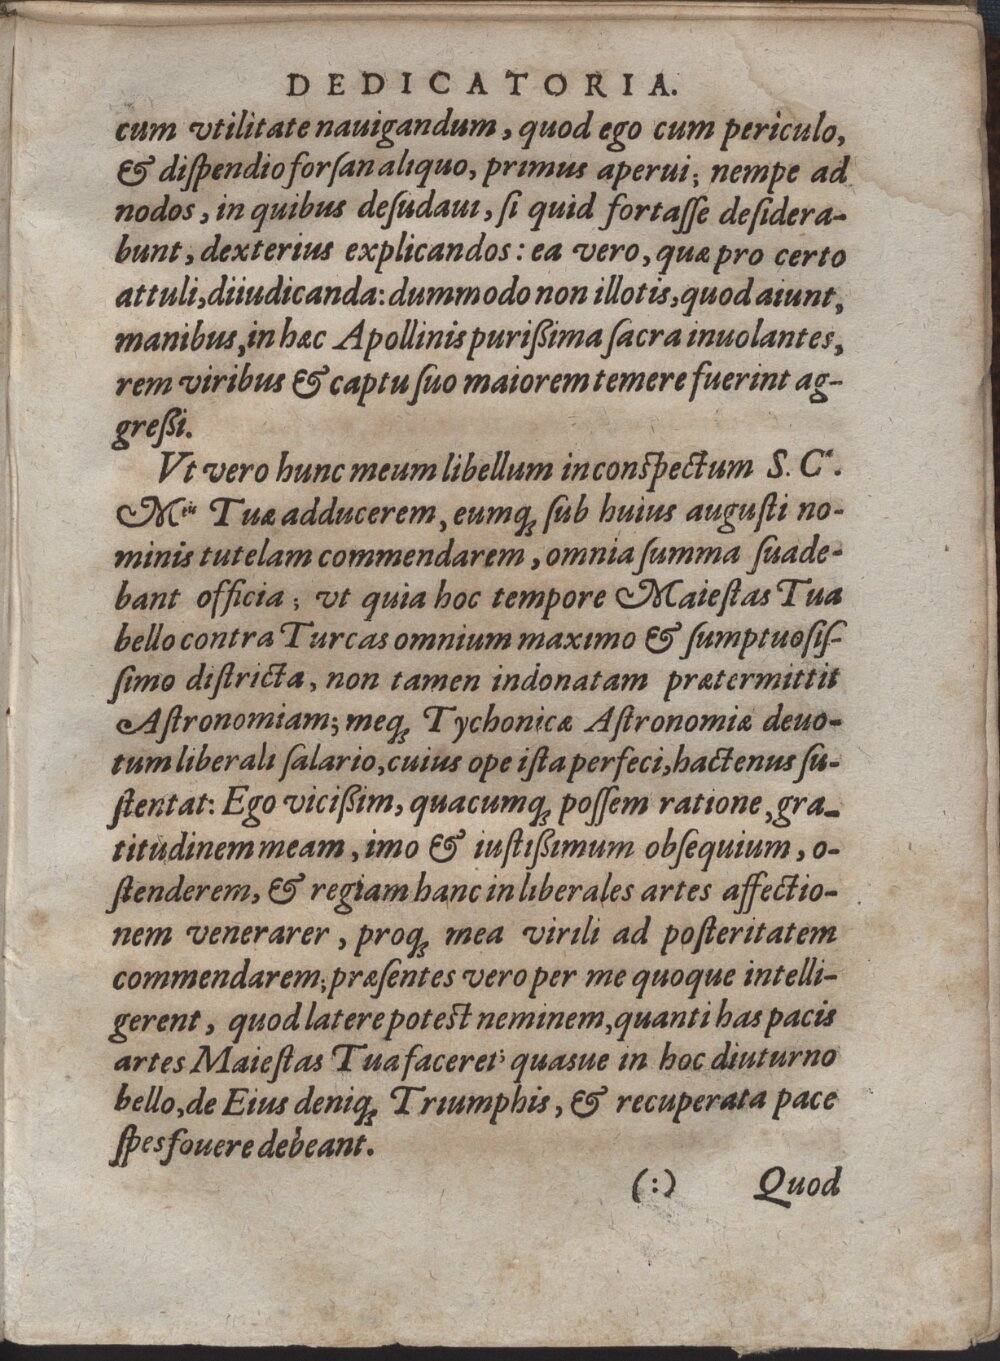 DEDICATORIA.
cum vtilitate nauigandum, quod ego cum periculo,
& diſpendio forſan aliquo, primus aperui; nempe ad
nodos, in quibus deſudaui, ſi quid fortaſſe deſidera-
bunt, dexterius explicandos: ea vero, quæ pro certo
attuli, diiudicanda: dummodo non illotis, quod aiunt,
manibus, in hæc Apollinis purißima ſacra inuolantes,
rem viribus & captu ſuo maiorem temere fuerint ag-
greßi.
Vt vero hunc meum libellum in conſpectum S. Cᵉ.
Mᵗⁱˢ Tuæ adducerem, eumqꝫ ſub huius auguſti no-
minis tutelam commendarem, omnia ſumma ſuade-
bant officia; vt quia hoc tempore Maieſtas Tua
bello contra Turcas omnium maximo & ſumptuoſiſ-
ſimo diſtricta, non tamen indonatam prætermittit
Aſtronomiam; meqꝫ Tychonicæ Aſtronomiæ deuo-
tum liberali ſalario, cuius ope iſta perfeci, hactenus ſu-
ſtentat: Ego vicißim, quacumqꝫ poſſem ratione, gra-
titudinem meam, imo & iuſtißimum obſequium, o-
ſtenderem, & regiam hanc in liberales artes affectio-
nem venerarer, proqꝫ mea virili ad poſteritatem
commendarem; præſentes vero per me quoque intelli-
gerent, quod latere poteſt neminem, quanti has pacis
artes Maieſtas Tua faceret; quasue in hoc diuturno
bello, de Eius deniqꝫ Triumphis, & recuperata pace
ſpes fouere debeant.
(:) Quod